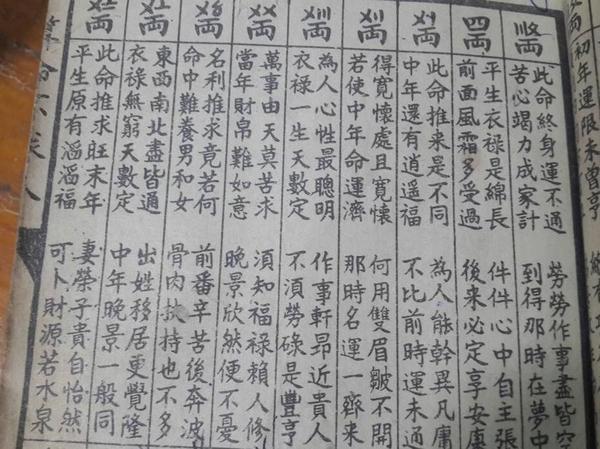 初年運限未曾亨
〣〩両
此命終身運不通 勞勞作事盡皆空
苦心竭力成家計 到得那時在夢中
四両
平生衣祿是綿長 件件心中自主張
前面風霜多受過 後來必定享安康
〤〡両
此命推來是不同 為人能幹異凡庸
中年還有逍遥福 不比前時運未通
〤〢両
得寬懷處且寬懷 何用雙眉皺不開
若使中年命運濟 那時名運一齊來
〤〣両
為人心性最聰明 作事軒昂近貴人
衣祿一生天數定 不須勞碌是豐亨
〤〤両
萬事由天莫苦求 須知福祿賴人修
當年財帛難如意 晚景欣然便不憂
〤〥両
名利推求竟若何 前番辛苦後奔波
命中難養男和女 骨肉扶持也不多
〤〦両
東西南北盡皆通 出姓移居更覺隆
衣祿無窮天數定 中年晚景一般同
〤〧両
此命推求旺末年 妻榮子貴自怡然
平生原有滔滔福 可卜財源若水泉